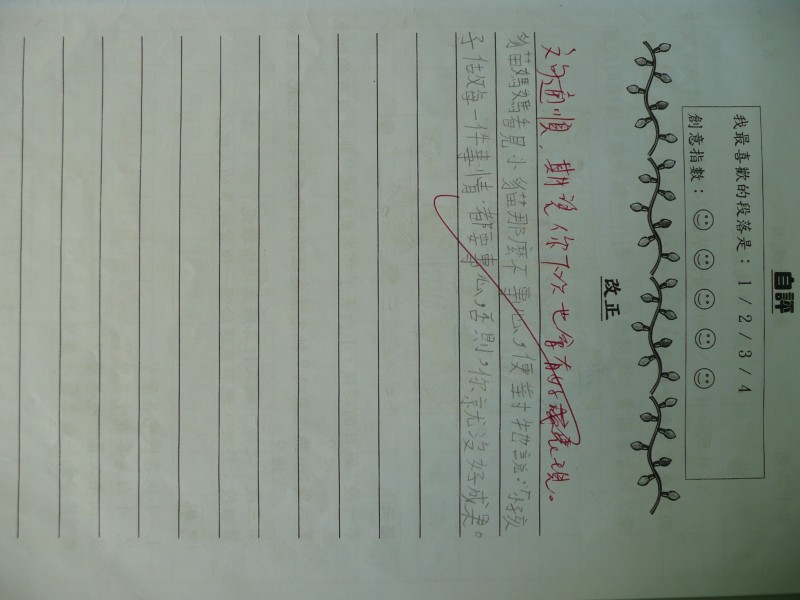 自評
我最喜歡的段落是：1 / 2 / 3 / 4
創意指數：
改正
文句通順，期望你下次也會有好表現。
貓媽媽看見小貓那麼不專心，便對牠說：「孩
子做每一件事情，都要專心，否則，你就沒好成果。